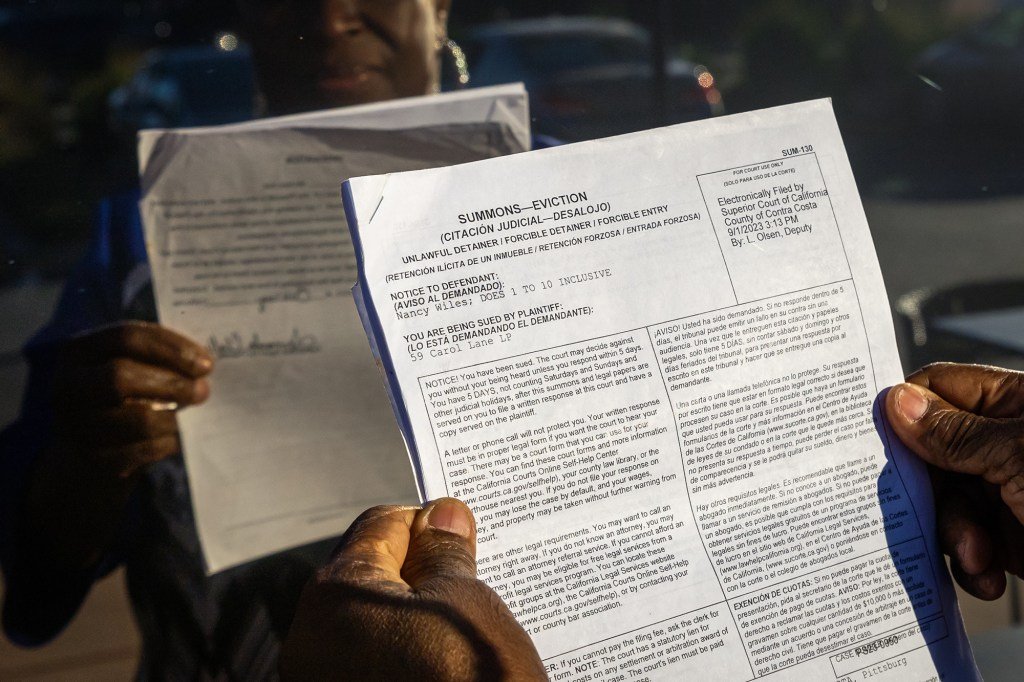 SUM-130
SUMMONS—EVICTION
(CITACIÓN JUDICIAL—DESALOJO)
UNLAWFUL DETAINER / FORCIBLE DETAINER / FORCIBLE ENTRY
(RETENCIÓN ILÍCITA DE UN INMUEBLE / RETENCIÓN FORZOSA / ENTRADA FORZOSA)
FOR COURT USE ONLY
(SOLO PARA USO DE LA CORTE)
Electronically Filed by
Superior Court of California
County of Contra Costa
9/1/2023 3:13 PM
By: L. Olsen, Deputy
NOTICE TO DEFENDANT:
(AVISO AL DEMANDADO):
Nancy Wiles; DOES 1 TO 10 INCLUSIVE
YOU ARE BEING SUED BY PLAINTIFF:
(LO ESTÁ DEMANDANDO EL DEMANDANTE):
59 Carol Lane LP
NOTICE! You have been sued. The court may decide against
you without your being heard unless you respond within 5 days.
You have 5 DAYS, not counting Saturdays and Sundays and
other judicial holidays, after this summons and legal papers are
served on you to file a written response at this court and have a
copy served on the plaintiff.
A letter or phone call will not protect you. Your written response
must be in proper legal form if you want the court to hear your
case. There may be a court form that you can use for your
response. You can find these court forms and more information
at the California Courts Online Self-Help Center
www.courts.ca.gov/selfhelp), your county law library, or the
house nearest you. If you do not file your response on
you may lose the case by default, and your wages,
ey, and property may be taken without further warning from
court.
ere are other legal requirements. You may want to call an
ttorney right away. If you do not know an attorney, you may
nt to call an attorney referral service. If you cannot afford an
ey, you may be eligible for free legal services from a
it legal services program. You can locate these
fit groups at the California Legal Services website
whelpca.org), the California Courts Online Self-Help
www.courts.ca.gov/selfhelp), or by contacting your
t or county bar association.
R: If you cannot pay the filing fee, ask the clerk for
form. NOTE: The court has a statutory lien for
costs on any settlement or arbitration award of
case. The court's lien must be paid
¡AVISO! Usted ha sido demandado. Si no responde dentro de 5
días, el tribunal puede emitir un fallo en su contra sin una
audiencia. Una vez que le entreguen esta citación y papeles
legales, solo tiene 5 DÍAS, sin contar sábado y domingo y otros
días feriados del tribunal, para presentar una respuesta por
escrito en este tribunal y hacer que se entregue una copia al
demandante.
Una carta o una llamada telefónica no lo protege. Su respuesta
por escrito tiene que estar en formato legal correcto si desea que
procesen su caso en la corte. Es posible que haya un formulario
que usted pueda usar para su respuesta. Puede encontrar estos
formularios de la corte y más información en el Centro de Ayuda
de las Cortes de California (www.sucorte.ca.gov), en la biblioteca
de leyes de su condado o en la corte que le quede más cerca. Si
no presenta su respuesta a tiempo, puede perder el caso por falta
de comparecencia y se le podrá quitar su sueldo, dinero y bienes
sin más advertencia.
Hay otros requisitos legales. Es recomendable que llame a un
abogado inmediatamente. Si no conoce a un abogado, puede
llamar a un servicio de remisión a abogados. Si no puede pagar
un abogado, es posible que cumpla con los requisitos para
obtener servicios legales gratuitos de un programa de servicios
legales sin fines de lucro. Puede encontrar estos grupos sin fines
de lucro en el sitio web de California Legal Services,
(www.lawhelpcalifornia.org), en el Centro de Ayuda de las Cortes
de California, (www.sucorte.ca.gov) o poniéndose en contacto
con la corte o el colegio de abogados local.
EXENCIÓN DE CUOTAS: Si no puede pagar la cuota de
presentación, pida al secretario de la corte que le dé un formulario
de exención de pago de cuotas. AVISO: Por ley, la corte tiene
derecho a reclamar las cuotas y los costos exentos con un
gravamen sobre cualquier cantidad de $10,000 ó más
mediante un acuerdo o una concesión de arbitraje en un caso de
derecho civil. Tiene que pagar el gravamen de la corte antes de
que la corte pueda desestimar el caso.
CASE
PS23-0960
Pittsburg